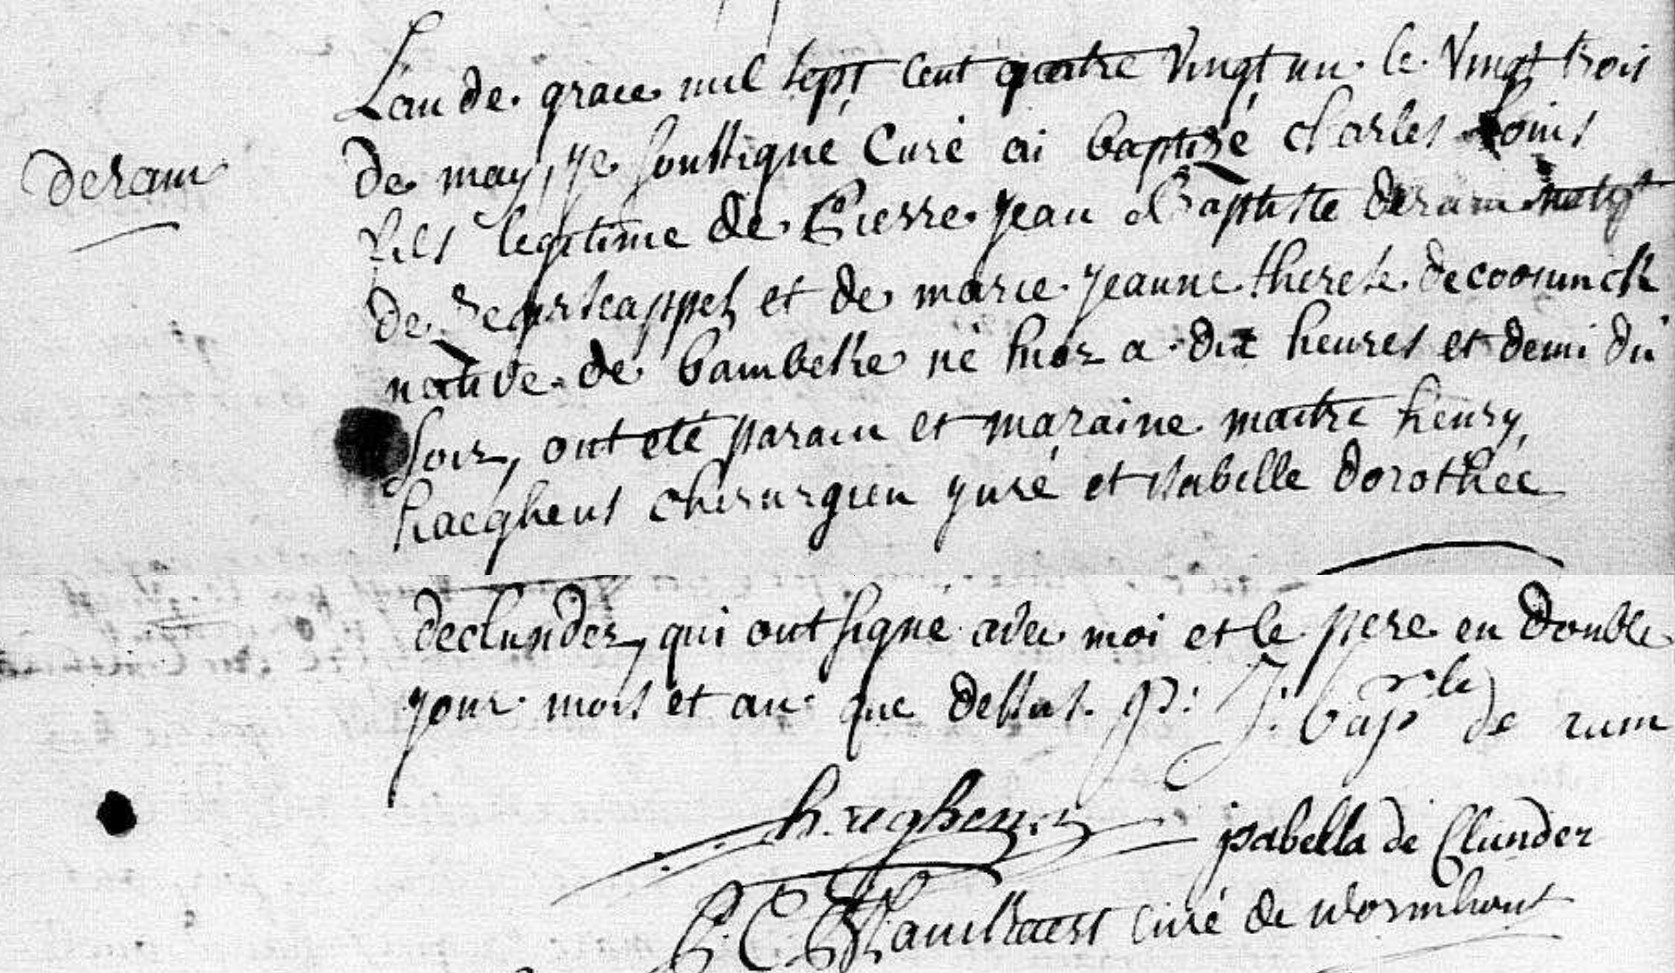 Lan de grace mil sept cent quatre vingt un le vingt trois
deram
de may, je soussigné Curé ai baptisé charles Louis
fils legitime de Pierre Jean Baptiste deram natif
de Regerscappel et de marie jeanne therese decoounck
native de bambeke né hier a dix heures et demi du
soir, ont eté parain et maraine maitre henry
haeghens chirurgien juré et isabelle dorothée
declunder, qui ont signé avec moi et le pere en double
jour mois et an que dessus. P: J: bapte de ram
isabella de Clunder
curé de wormhout